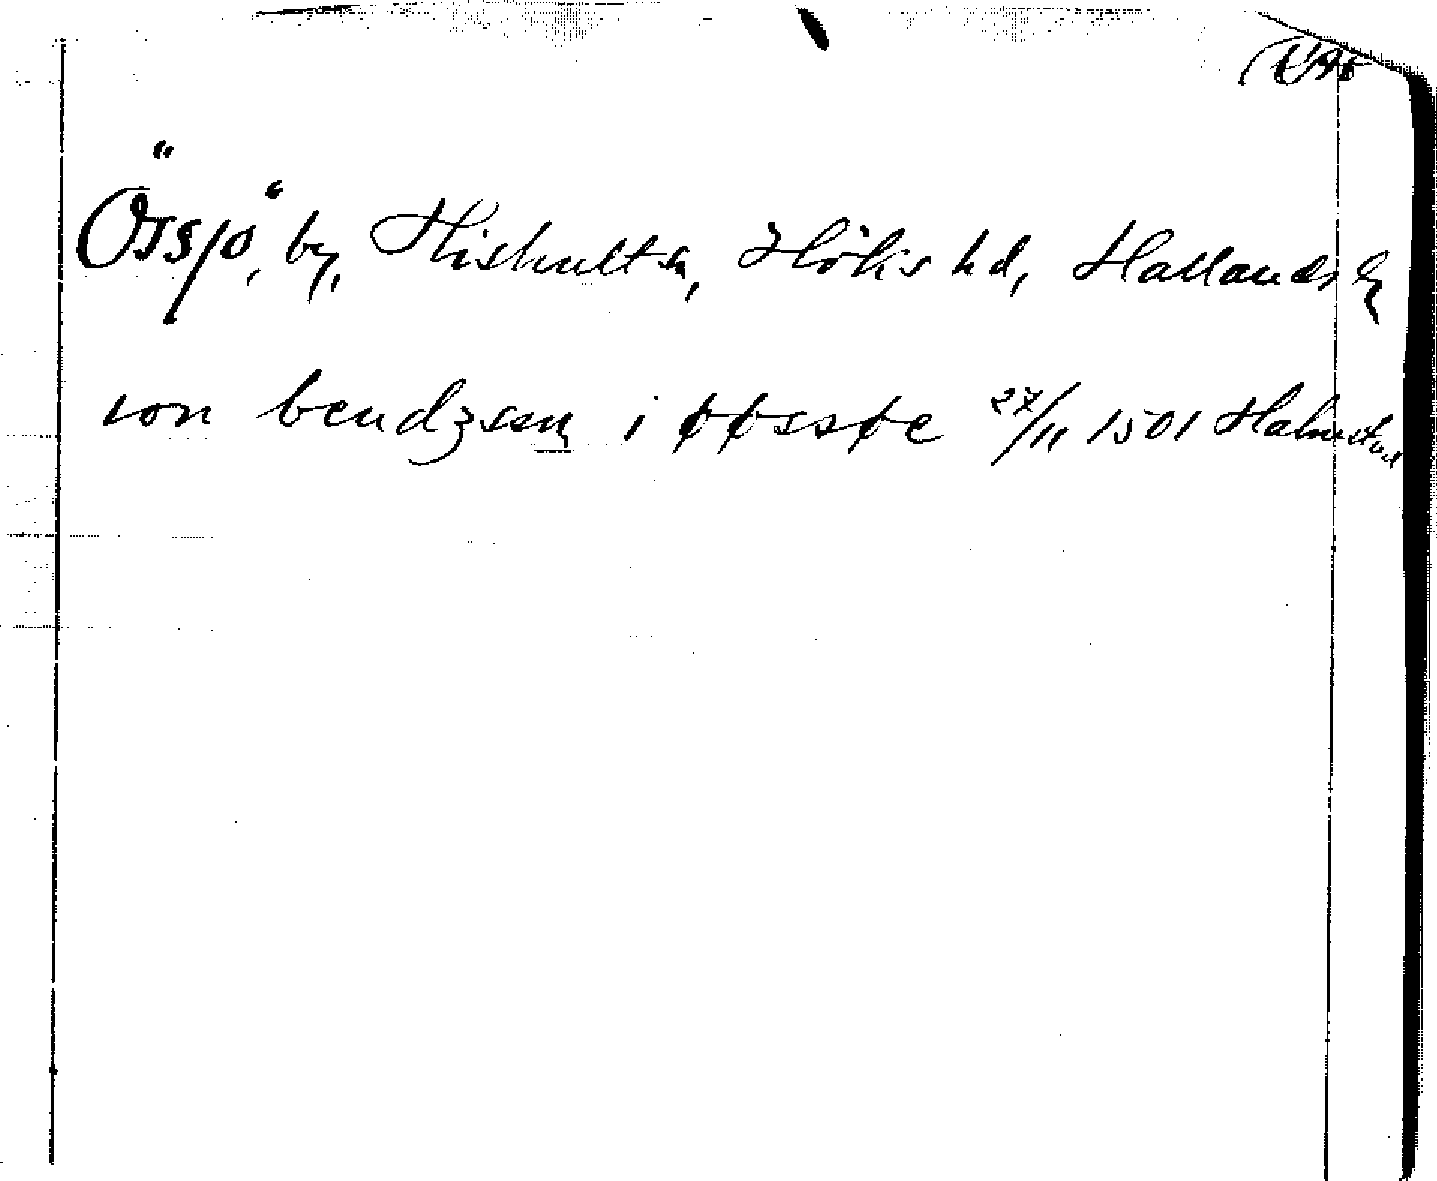 Össjö, by, Hishults sn, Höks hd, Hallands l.
ion bendzsen i øøssøe 27/11 1501 Halmstad